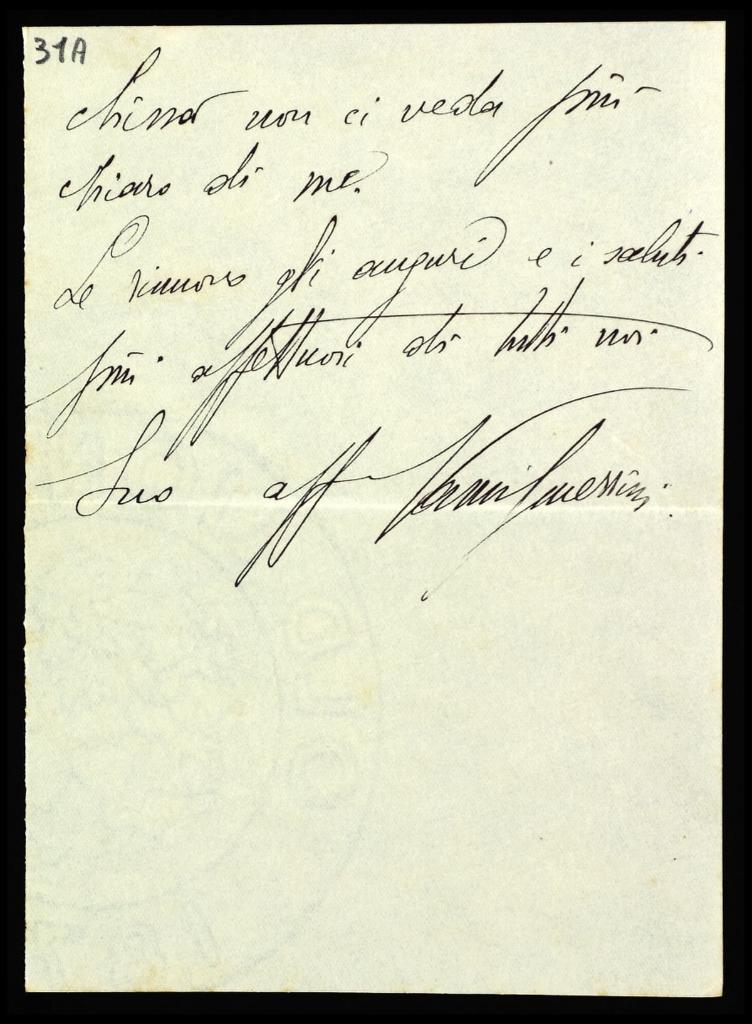 31A
chissà non ci veda più
chiaro di me.
Le rinnovo gli auguri e i saluti
più affettuosi di tutti noi
Suo aff